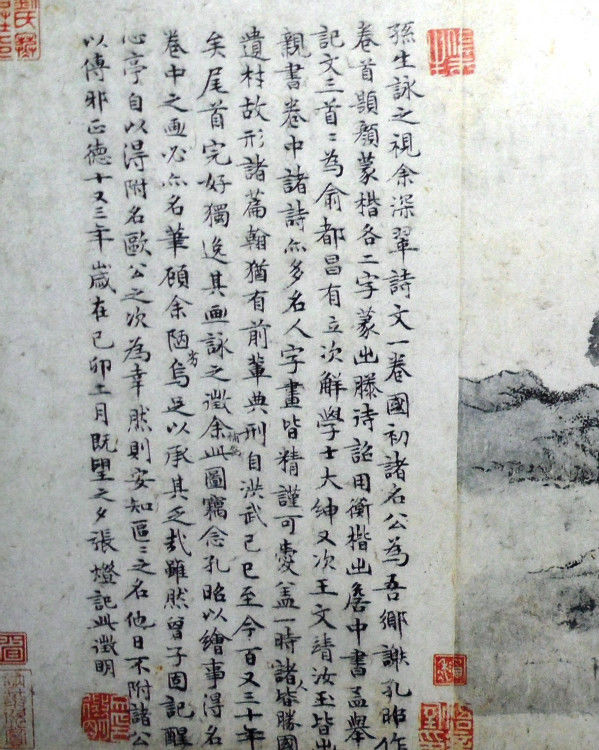 孫生詠之視余深翠詩文一卷國初諸名公為吾鄉謝孔昭作
卷首題顏篆楷各二字篆出滕待詔用衡楷出詹中書孟舉
記文三首〻為俞都昌有立次解學士大紳又次王文靖汝玉皆出
親書卷中諸詩亦多名人字畫皆精謹可愛蓋一時諸人皆勝國
遺材故形諸篇翰猶有前輩典刑自洪武己巳至今百又三十年
矣尾首完好獨逸其画詠之徵余補為此圖竊念孔昭以繪事得名
卷中之画必亦名筆顧余陋劣烏足以承其乏哉雖然曾子固記醒
心亭自以得附名歐公之次為幸然則安知區〻之名他日不附諸公
以傳邪正德十又三年歲在己卯十一月既望之夕張燈記此徵明